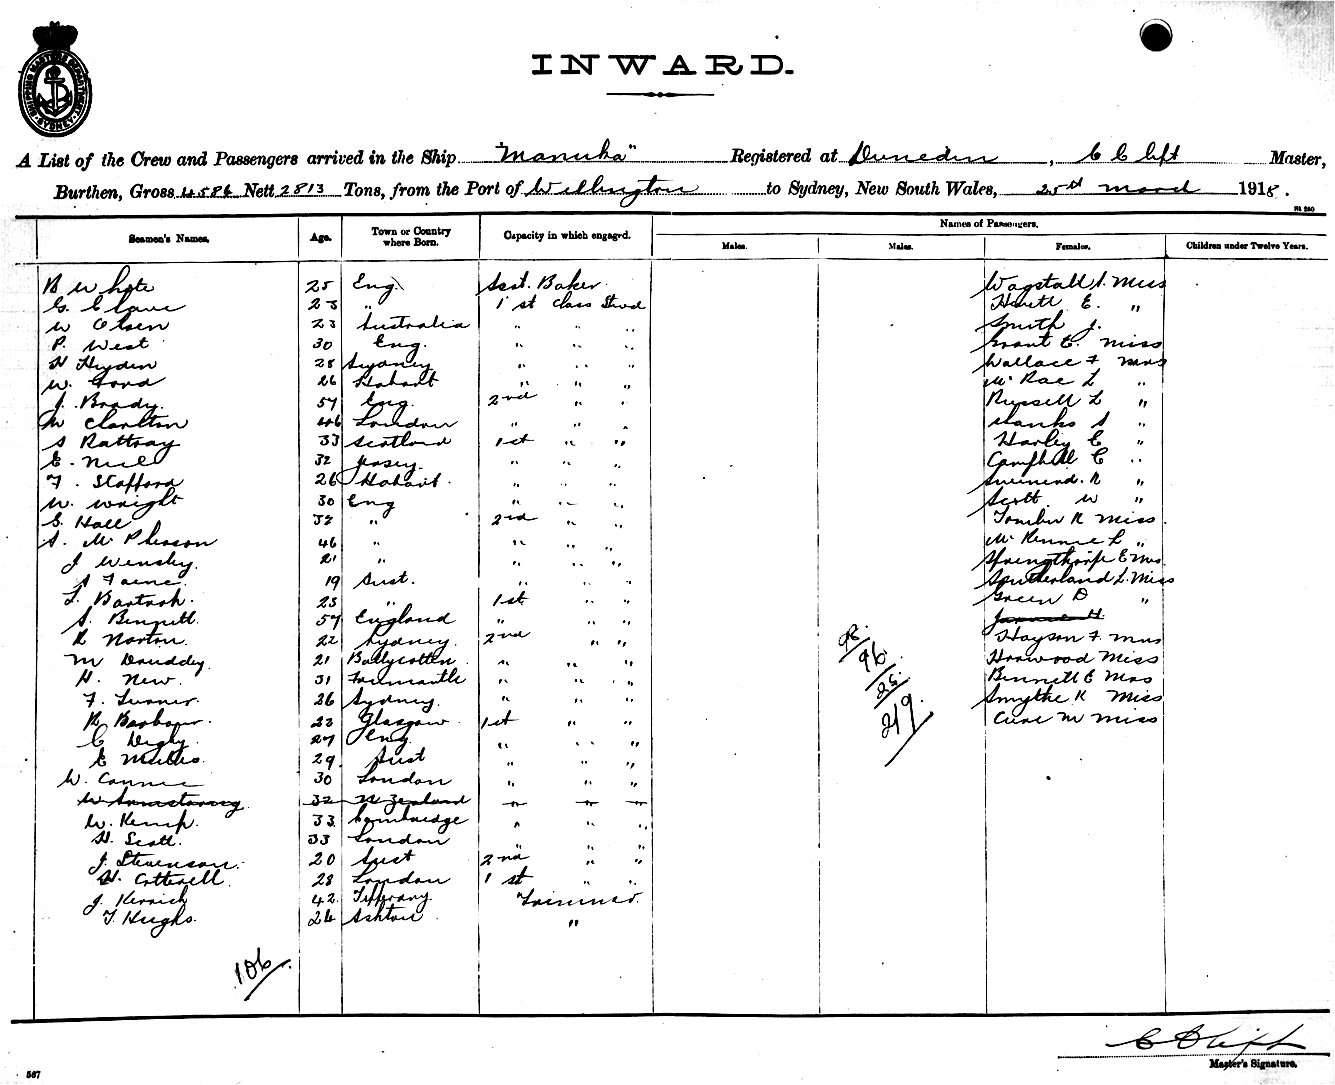 SHIPPING MASTER'S DEPARTMENT SYDNEY
INWARD.
A List of the Crew and Passengers arrived in the Ship "Manuka" Registered at Dunedin, C C lift Master,
Burthen, Gross 4586 Nett 2813 Tons, from the Port of Wellington to Sydney, New South Wales, 25th March 1918.
Names of Passengers.
Seamen's Names. Age. Town or Country where Born. Capacity in which engaged. Males. Males. Females. Children under Twelve Years.
25 Eng. Asst. Baker. Miss
G. 23 " 1st Class Stwd E. "
W Olsen 23 Australia " " " Smith J.
P. West 30 Eng. " " " Grant E. Miss
H Hyden 28 Sydney " " " Wallace F Mrs
W. Ford 26 Hobart " " " McRae L "
J. Brady. 57 Eng. 2nd " " Russell L "
W Clarkton 46 London " " " Hanks S "
S Rattray 33 Scotland 1st " " Harley E "
E. 32 Jersey. " " " Campbell C "
F. Stafford 26 Hobart. " " " R "
W. Wright 30 Eng " " " Scott W "
S. Hall 32 " 2nd " " R Miss
S. McPherson 46 " " " " McKennie L "
J Wensley. 21 " " " " Spengthorpe E Mrs
19 Aust. " " " Sutherland L. Miss
23 " 1st " " Green D "
S. Bennett. 57 England " " "
R Norton. 22 Sydney. 2nd " " Hayson F Mrs
M 21 Ballycotten " " " Miss
H. New. 31 Fremantle " " " Bennett E Mrs
F. Turner. 26 Sydney. " " " Smythe R Miss
R Barbour. 22 Glasgow 1st " " M Miss
C Digby. 27 Eng. " " "
E 29. Aust " " "
W. 30 London " " "
W Armstrong. 32 N Zealand " " "
W. Kemp. 33. Cambridge " " "
H. Scott. 33 London " " "
J. Stevenson. 20 Aust 2nd " "
H. Cotterell. 28 London 1st " "
J. 42. Tipperary. Trimmer.
T. Hughs. 24 Ashton "
98.
96.
25.
219.
106.
C C lift
Master's Signature.
567